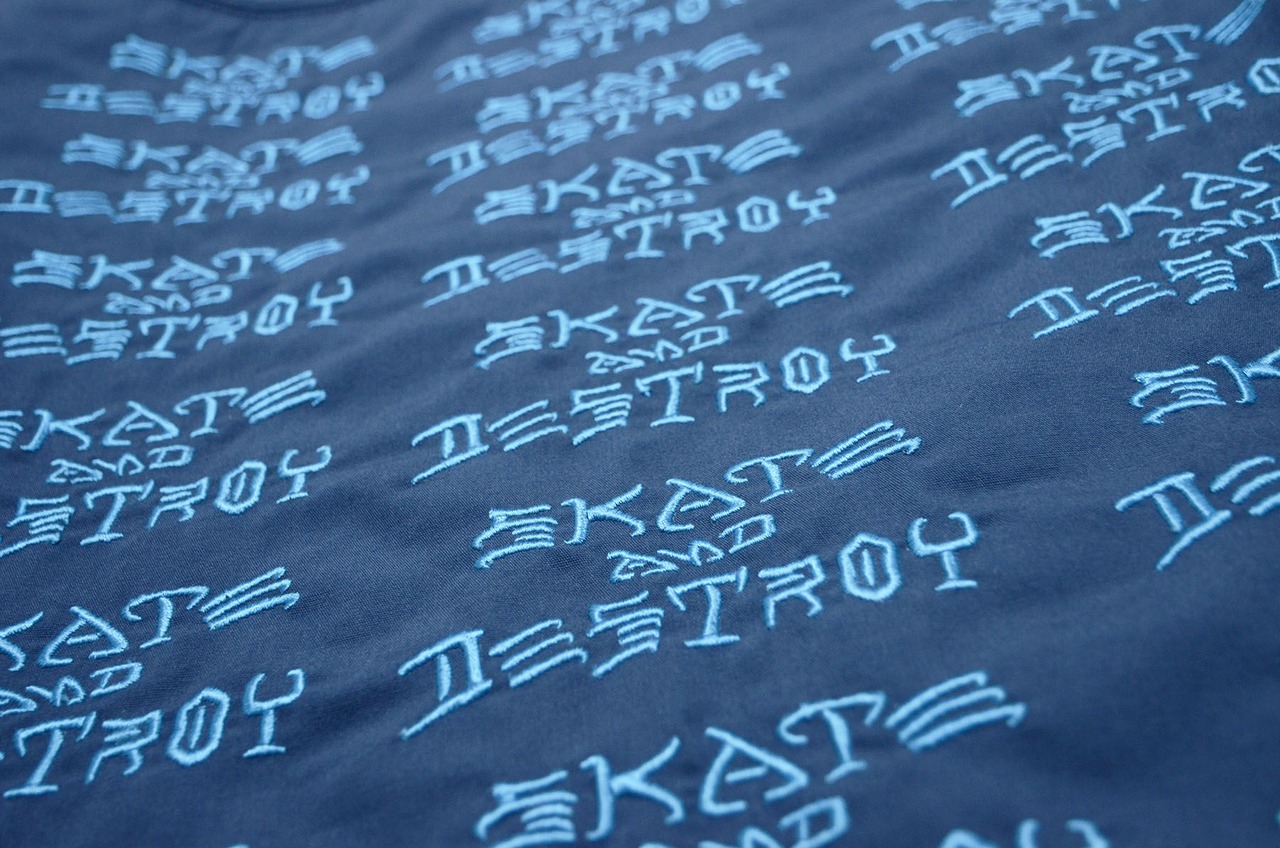 SKATE
AND
DESTROY
SKATE
AND
DESTROY
SKATE
AND
ESTROY
SKATE
AND
STROY
KATE
AND
TROY
SKATE
AND
DESTROY
SKATE
AND
DESTROY
SKATE
AND
DESTROY
SKATE
AND
DESTROY
SKATE
AND
DESTROY
SKATE
AND
DEST
SKATE
AND
DESTRO
SKAT
AND
DEST
SK
DE